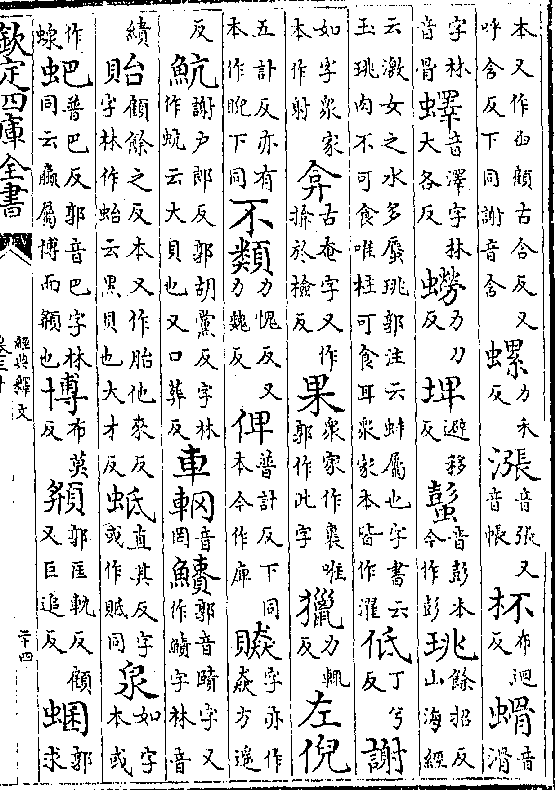 本又作函顧古含反又呼含反下同謝音含螺力禾反漲音張又音帳杯布迴反螖音滑
字林音骨蠌音澤字林大各反蟧力刀反埤避移反蟚音彭本今作彭珧餘招反山海經
云激女之水多蜃珧郭注云蚌屬也字書云玉珧肉不可食唯柱可食耳衆家本皆作濯低丁兮反謝
如字衆家本作射弇古奄字又作揜於檢反果衆家作裹唯郭作此字獵力輒反左倪
五計反亦有本作睨下同不類力愧反又力魏反俾普計反下同本今作庳贆字亦作猋方遥
反魧謝戶郎反郭胡黨反字林作蚢云大貝也又口葬反車輞音罔鰿郭音賾字又作䐒字林音
績貽顧餘之反本又作胎他來反字林作蛤云黑貝也大才反蚳直其反字或作貾同泉如字本或
作蝝蚆普巴反郭音巴字林同云蠃屬博而頯也博布莫反頯郭匡軌反顧又巨追反蜠郭求
欽定四庫全書
經典釋文
卷三十
二十四